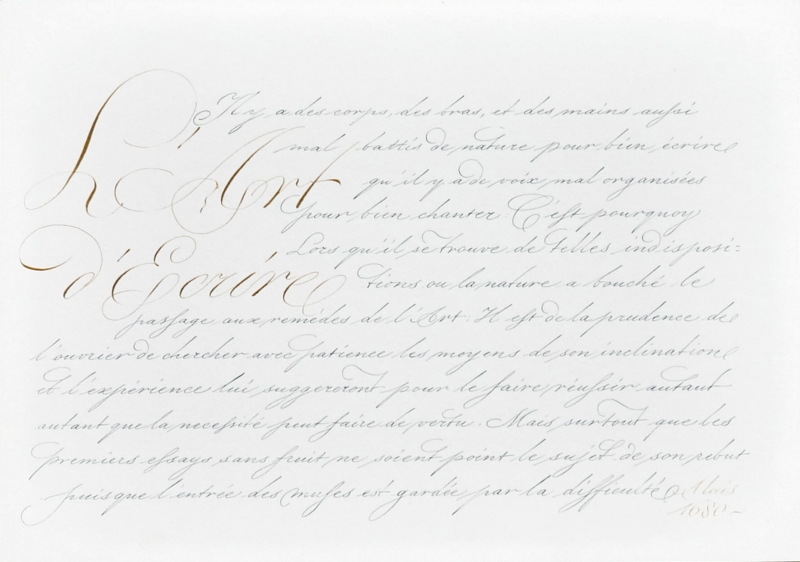 L'Art
d'Ecrire
Il y a des corps, des bras, et des mains aussi
mal battis de nature pour bien écrire
qu'il y a de voix mal organisées
pour bien chanter C'est pourquoy
Lors qu'il se trouve de telles indisposi=
tions ou la nature a bouché le
passage aux remédes de l'Art. Il est de la prudence de
l'ouvrier de chercher avec patience les moyens de son inclination
et l'expérience lui suggeront pour le faire réussir autant
autant que la necessité peut faire de vertu. Mais surtout que les
premiers essays sans fruit ne soient point le sujet de son rebut
puisque l'entrée des muses est gardée par la difficulté
Alais
1680